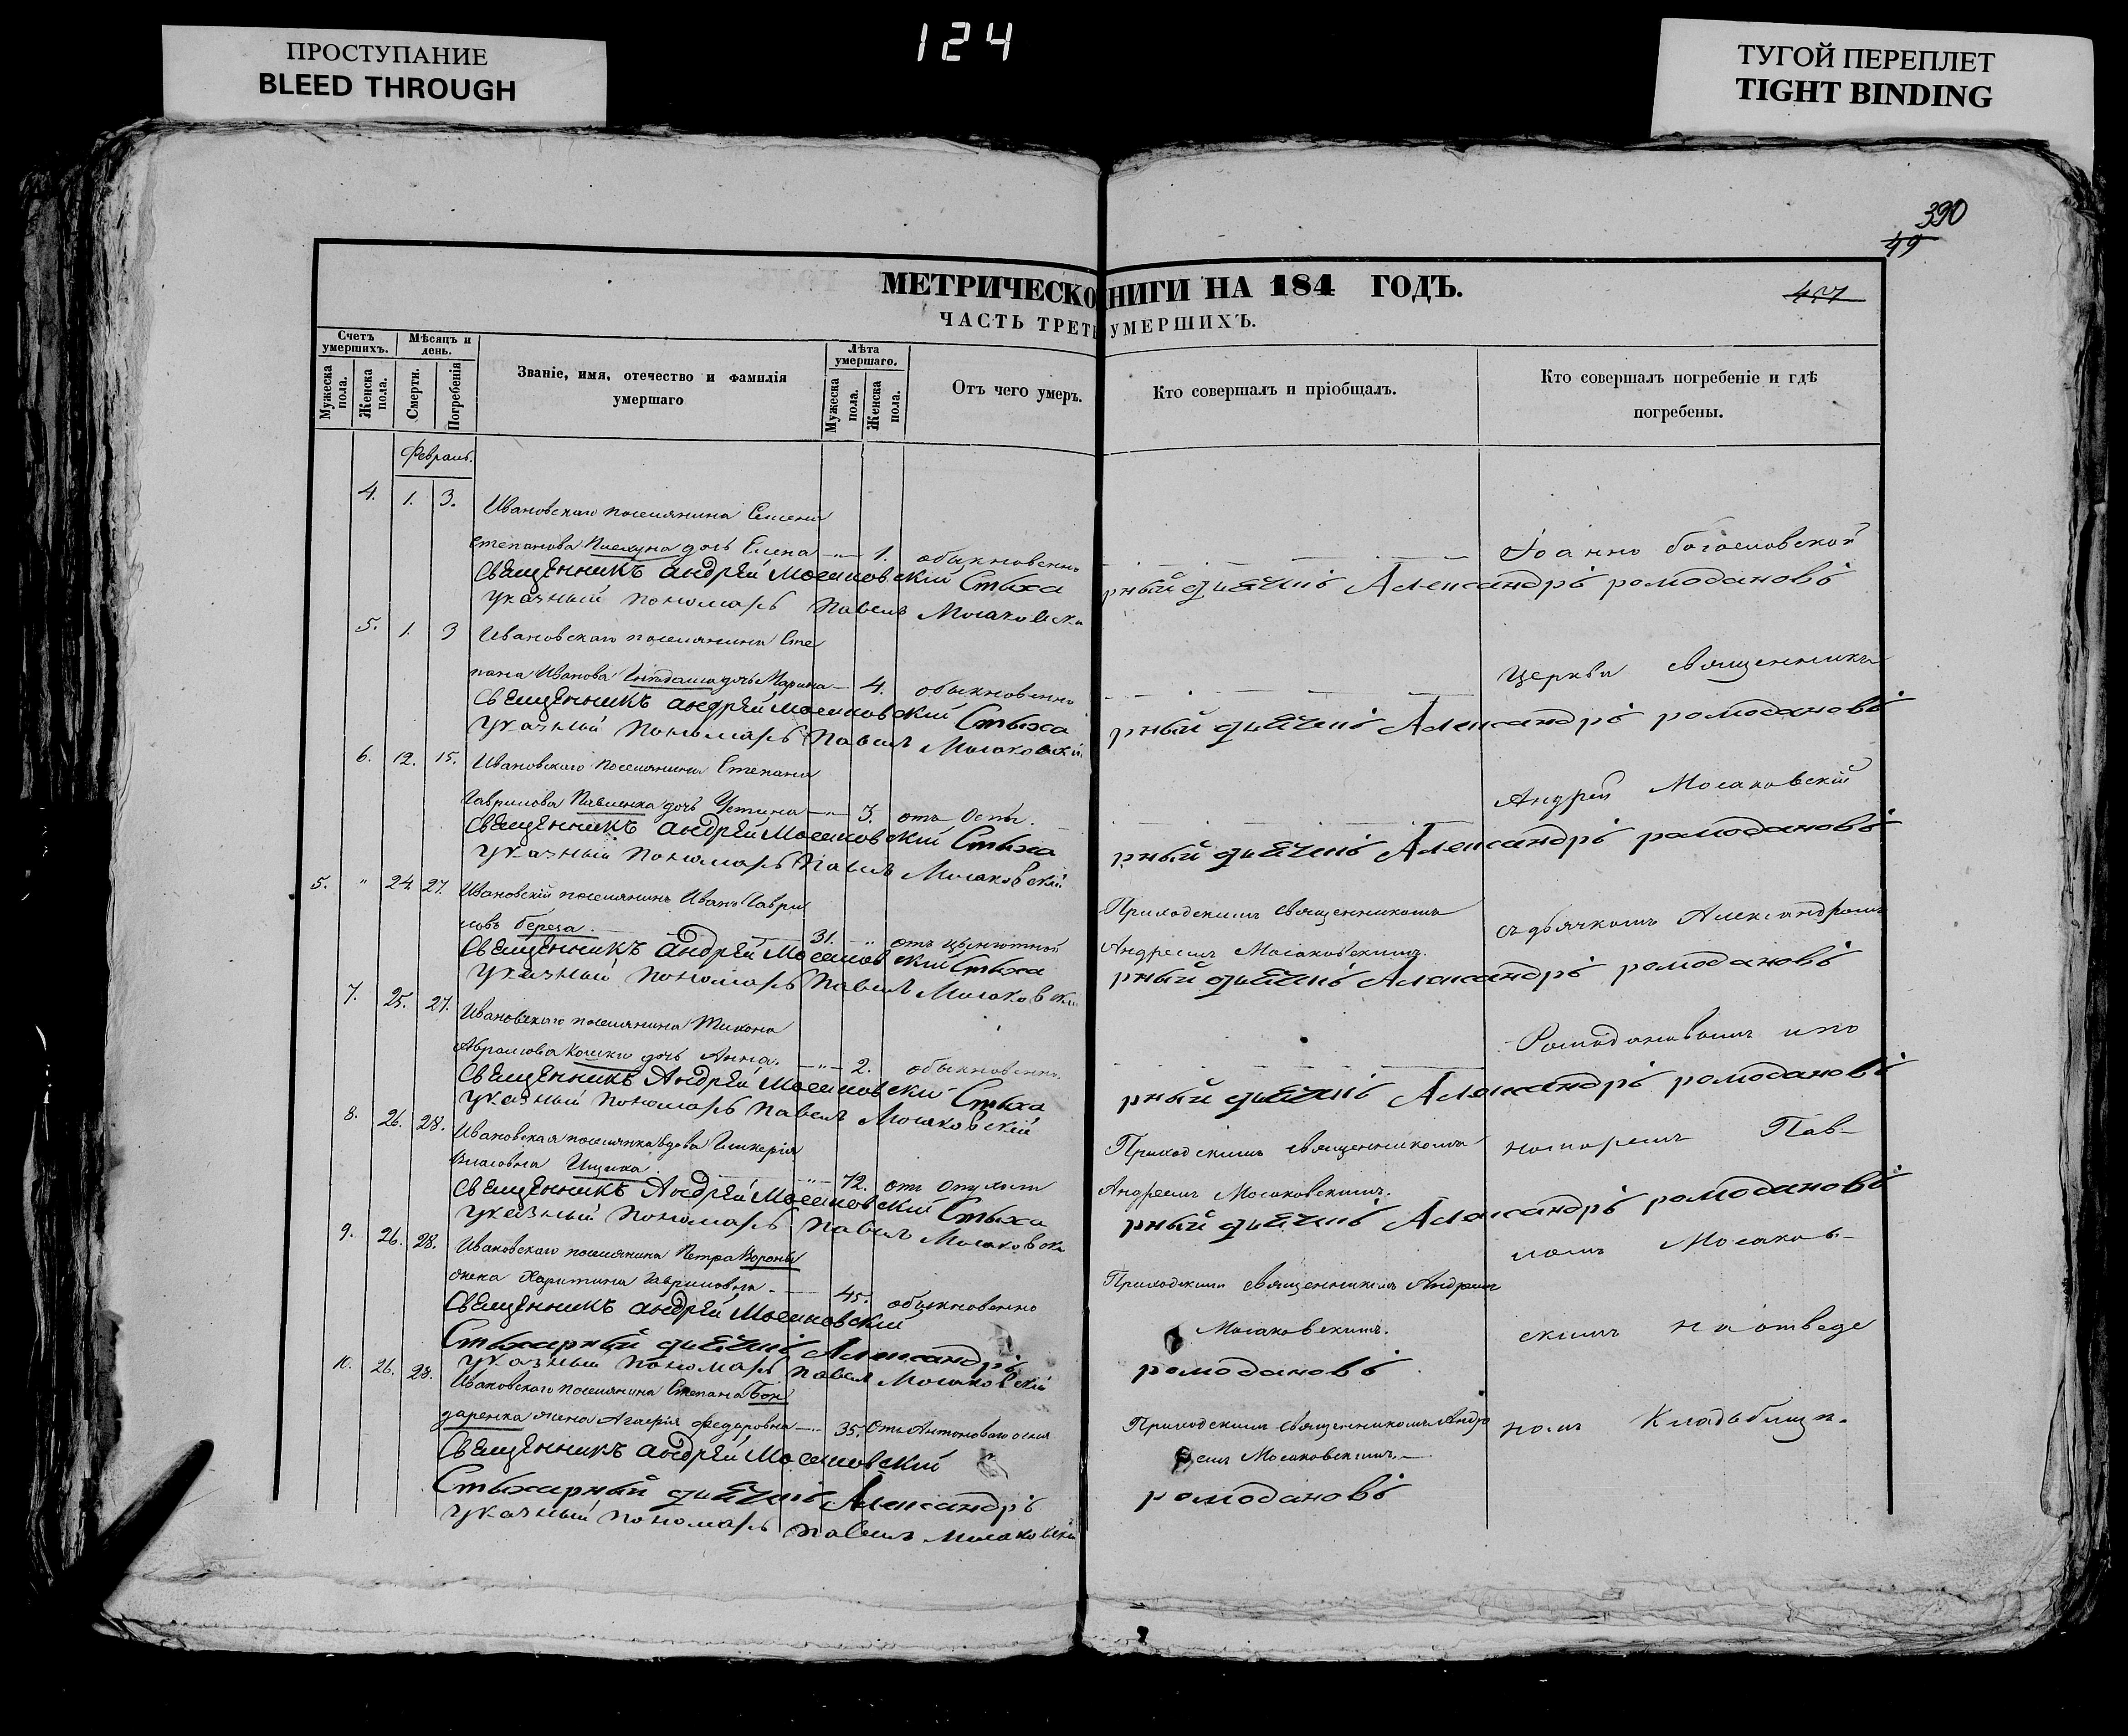 ПРОСТУПАНИЕ
BLEED THROUGH
124
ТУГОЙ ПЕРЕПЛЕТ
TIGHT BINDING
390
49
МЕТРИЧЕСКО НИГИ НА 184 ГОДЪ.
ЧАСТЬ ТРЕТЬ УМЕРШИХЪ.
Счетъ умершихъ.
Мужеска пола.
Женска пола.
Мѣсяцъ и день.
Смерти.
Погребенія
Званіе, имя, отечество и фамилія умершаго
Лѣта умершаго.
Мужеска пола.
Женска пола.
Отъ чего умеръ.
Кто совершалъ и пріобщалъ.
Кто совершалъ погребеніе и гдѣ погребены.
Февраль.
4. 1. 3. Ивановскаго поселянина Семена
Степанова дочь Елена 1. обыкновенно
Іоанно богословской
Священникъ Андрей Мосаковскій Стыхарный Александръ ромодановъ
указный пономарь Павелъ Мосаковски
5. 1. 3 Ивановскаго поселянина Сте
пана Иванова дочь Марина 4. обыкновенно
церкви священникъ
Священникъ Андрей Мосаковскій Стыхарный Александръ ромодановъ
указный пономарь Павелъ Мосаковскій
6. 12. 15. Ивановскаго поселянина Степана
Гаврилова Павленка дочь Устина 3. отъ Оспы.
Андрей Мосаковскій
Священникъ Андрей Мосаковскій Стыхарный Александръ ромодановъ
указный пономарь Павелъ Мосаковскій
5. " 24. 27. Ивановскій поселянинъ Иванъ Гаври
ловъ береза. 31. " отъ
Приходскимъ священникомъ
Андреемъ Мосаковскимъ.
съ дьячкомъ Александромъ
Священникъ Андрей Мосаковскій Стыхарный Александръ ромодановъ
указный пономарь Павелъ Мосаковскій
7. 25. 27. Ивановскаго поселянина Тихона
Аврамова Кошки дочь Анна. 2. обыкновенно.
Ромодановымъ и по
Священникъ Андрей Мосаковски Стыхарный Александръ ромодановъ
указный пономарь Павелъ Мосаковскій
8. 26. 28. Ивановская поселянка вдова Гликерія
Власовна Ищенка. 72. отъ Опухоли
Приходскимъ священникомъ
Андреемъ Мосаковскимъ.
номаремъ Пав-
Священникъ Андрей Мосаковскій Стыхарный Александръ ромодановъ
указный пономарь Павелъ Мосаковски
9. 26. 28. Ивановскаго поселянина Петра Вороны
жена Харитина Гаврилова. 45. обыкновенно
Приходскимъ священникомъ Андреемъ
Мосаковскимъ.
ломъ Мосаков-
Священникъ Андрей Мосаковскій
скимъ на отведе
Стыхарный Александръ ромодановъ
указный пономарь Павелъ Мосаковскій
10. 26. 28. Ивановскаго поселянина Степана Бон
даренка жена Агафія Федоровна 35. Отъ Антонова огня
Приходскимъ священникомъ Андре
емъ Мосаковскимъ.
номъ Кладбищѣ.
Священникъ Андрей Мосаковскій
Стыхарный Александръ ромодановъ
указный пономарь Павелъ Мосаковскій